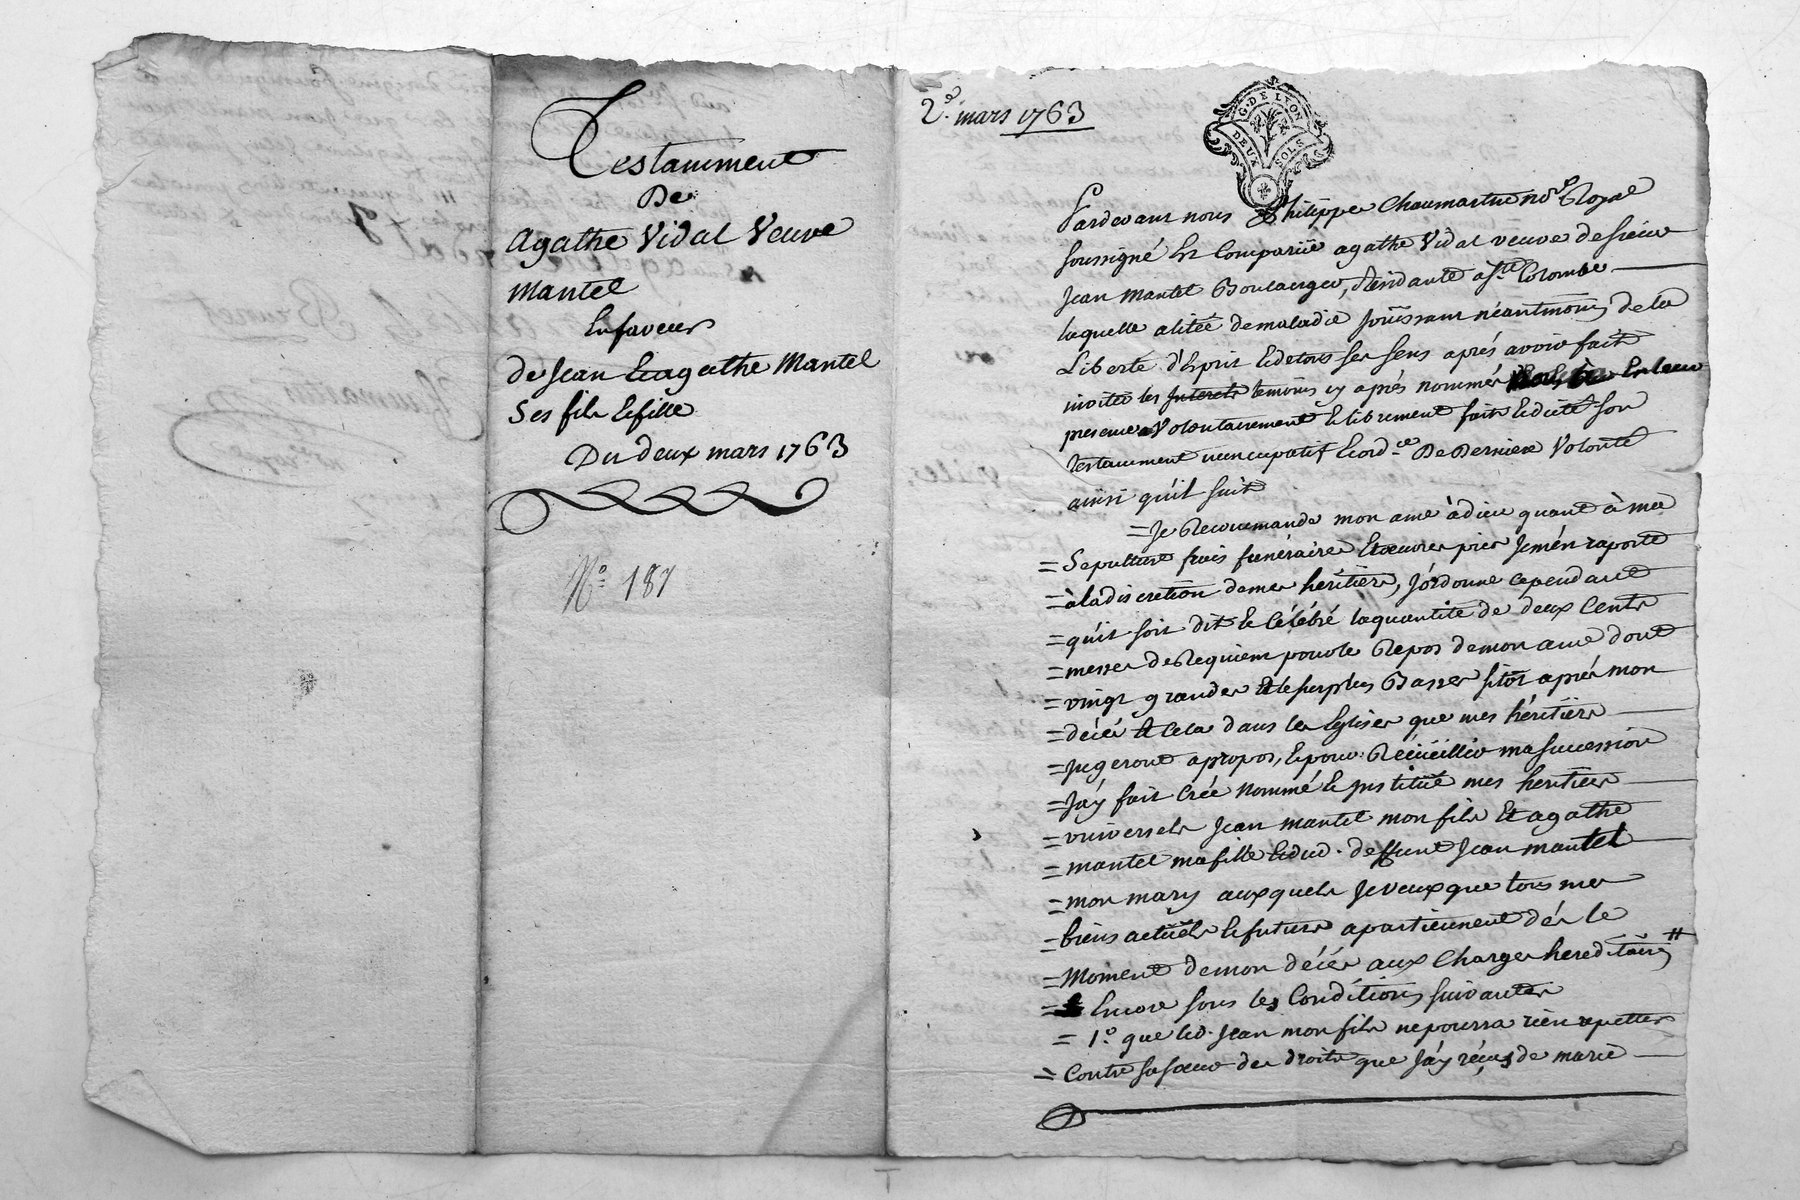 Testamment
De
Agathe Vidal Veuve
Mantel
En faveur
de Jean Et agathe Mantel
Ses fils et fille
Du deux mars 1763
N.º 187
2.e mars 1763
G. DE LYON
DEUX SOLS
Pardevant nous Philippe Chaumartin no.re Royal
soussigné Est Comparüe agathe Vidal veuve de sieur
Jean Mantel Boulanger, Residante à s.te Colombe
laquelle alitée de maladie Joüissant néantmoins de la
Liberté d'Esprit Et de tous ses sens aprés avoir fait
inviter les temoins cy aprés nommés En leur
presence Volontairement Et librement fait Et dicté son
testamment nuncupatif Et ord.ce De Derniere Volonté
ainsi qu'il suit
= Je Recommande mon ame à dieu quant à ma
= Sepulture frais funéraires Et oeuvres pies Je m'en raporte
= à la discretion de mes héritiers, J'ordonne cependant
= qu'il soit dit Et Célébré la quantité de deux Cents
= messes de Requiem pour le Repos de mon ame dont
= vingt grandes Et le surplus Basses sitôt aprés mon
= décés Et Cela dans les Eglises que mes héritiers
= jugeront apropos, Et pour Récüeillir ma succession
= J'ay fait Créé Nommé Et Institüé mes heritiers
= universels Jean mantel mon fils Et agathe
= mantel ma fille Et dud. deffunt Jean mantel
= mon mary auxquels Je veux que tous mes
= biens actüels Et futurs apartiennent dés le
= Moment de mon décés aux Charges hereditaires #
= Encore sous les Conditions suivantes
= 1.º que led. Jean mon fils ne pourra rien repetter
= Contre sa soeur des droits que J'ay réçus de marie